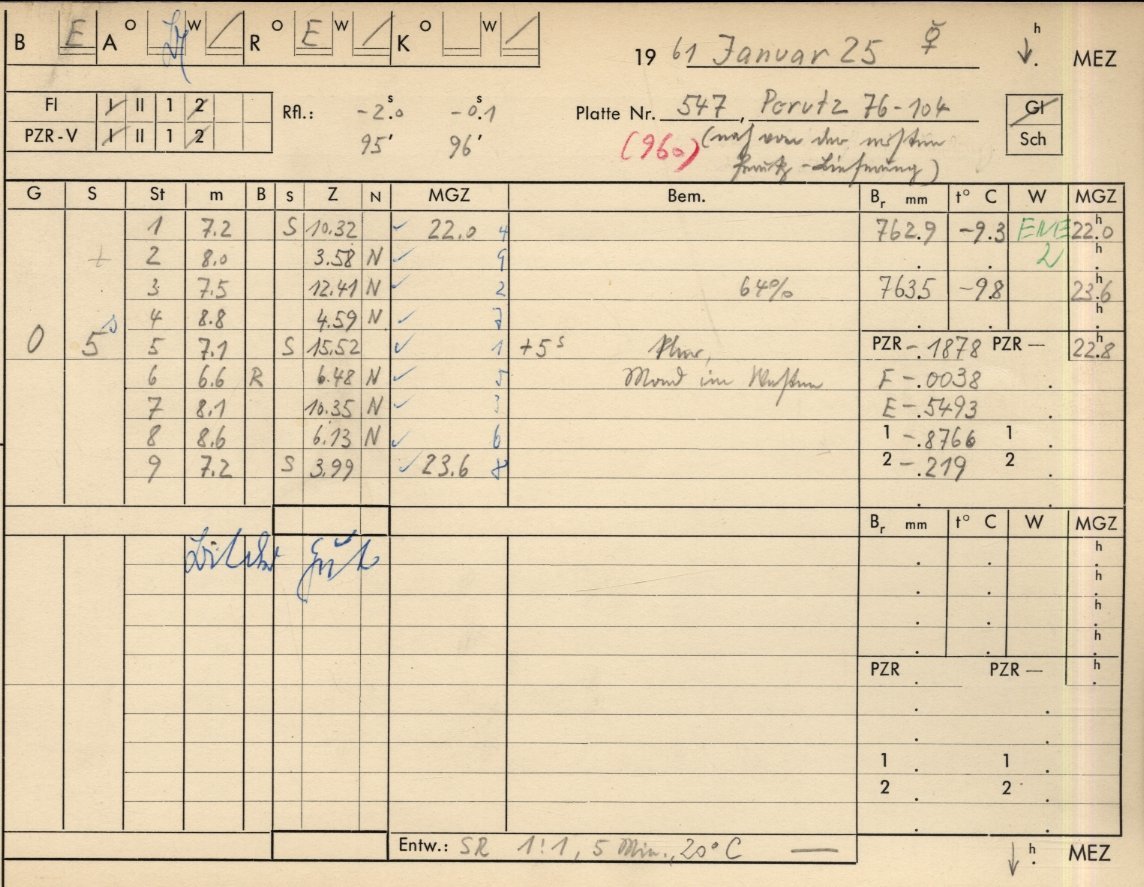 B E A O W R O E W K O W
19 61 Januar 25 ☿ h MEZ
FI I II 1 2 Rfl.: -2.ˢ0 -0.ˢ1 Platte Nr. 547, Perutz 76-104 Gl
PZR-V I II 1 2 95' 96' (960) Sch
G S St m B S Z N MGZ Bem. Bᵣ mm t° C W MGZ
1 7.2 S 10.32 ✓ 22.0 4 762.9 -9.3 ENE 22.ʰ0
2 8.0 3.58 N ✓ 9 2 h
3 7.5 12.41 N ✓ 2 64% 763.5 -9.8 23.6
4 8.8 4.59 N ✓ 7 h
0 5ˢ 5 7.1 S 15.52 ✓ 1 +5ˢ Klar, PZR -.1878 PZR — 22.8
6 6.6 R 6.48 N ✓ 5 Mond im Westen F -.0038
7 8.1 10.35 N ✓ 3 E -.5493
8 8.6 6.13 N ✓ 6 1 -.8766 1
9 7.2 S 3.99 ✓ 23.6 8 2 -.219 2
Bᵣ mm t° C W MGZ
Bilder gut h
h
h
h
PZR PZR — h
1 1
2 2
Entw.: SR 1:1, 5 Min., 20° C — h MEZ